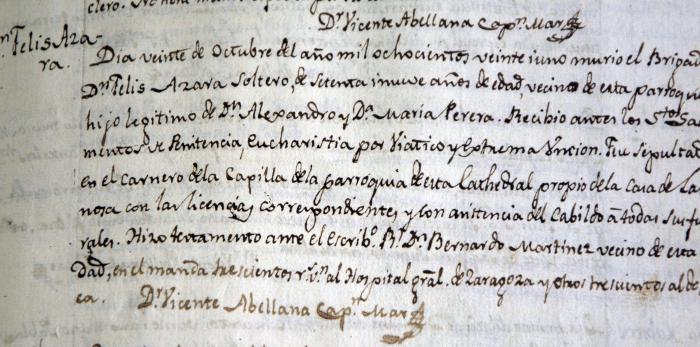 clero.
Dr. Vicente Abellana Capn. Mar
n Felis Aza-
ra.
Dia veinte de Octubre del año mil ochocientos veinte iuno murio el Brigad
Dn. Felis Azara Soltero, de setenta inueve años de edad, vecino de esta parroqui
hijo legitimo de Dn. Alexandro y Da. Maria Perera. Recibio antes los Stos. Sa
mentos de Penitencia, Eucharistia por Viatico y Extrema Vncion. Fue sepultad
en el Carnero de la Capilla de la parroquia de esta Cathedral propio de la Casa de La
nosa con las licencias correspondientes y con asistencia del Cabildo à todas sus fu
rales. Hizo testamento ante el Escribo. Rl. Dn. Bernardo Martinez vecino de esta
dad, en el manda trescientos rs. vn. al Hospital gral. de Zaragoza y otros trescientos al de
ca. Dr. Vicente Abellana Capn. Mar